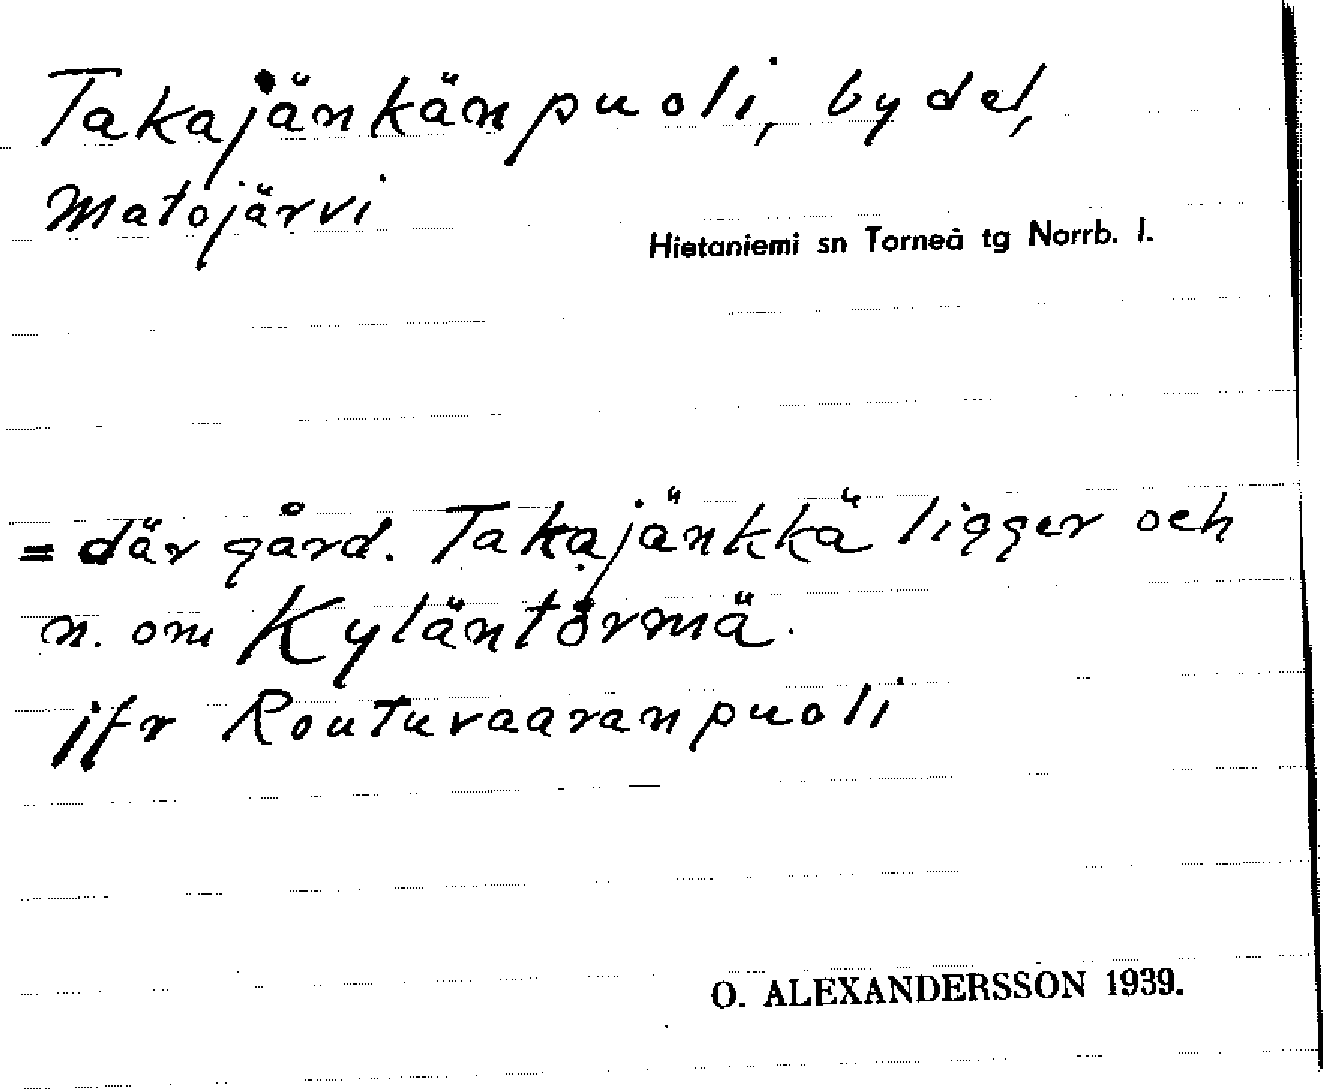 Takajänkänpuoli, bydel,
Matojärvi
Hietaniemi sn Torneå tg Norrb. l.
= där gård. Takajänkkä ligger och
n. om Kyläntörmä.
jfr Routuvaaranpuoli
O. ALEXANDERSSON 1939.